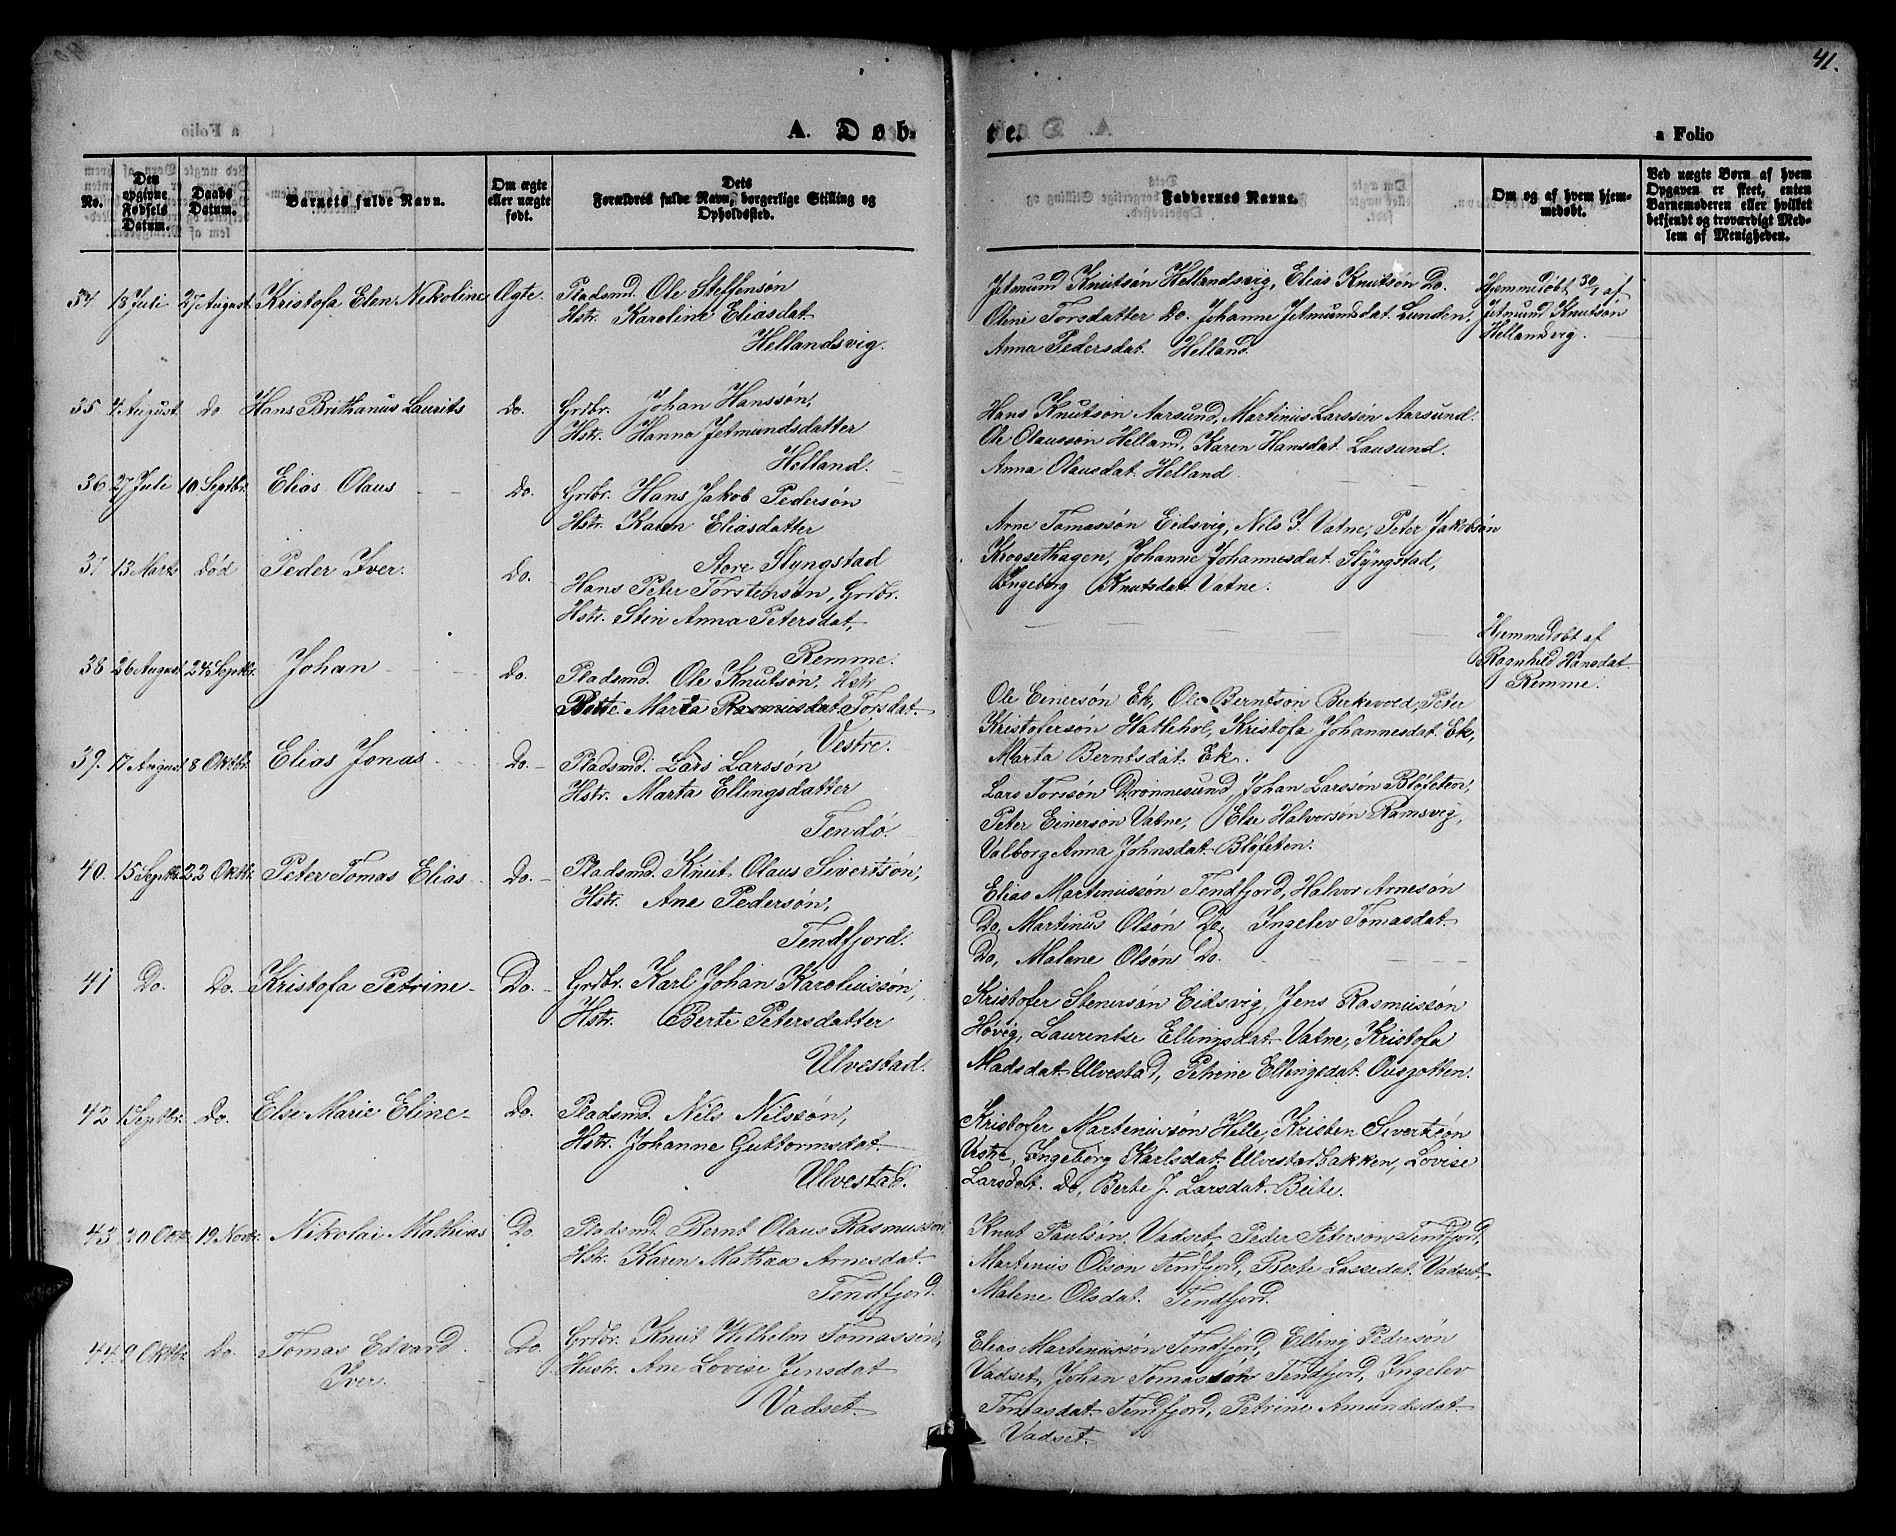 41.
A. Døb-
te.
a Folio
No.
Den opgivne Fødsels Datum.
Daabs Datum.
Barnets fulde Navn.
Om ægte eller uægte født.
Dets Forældres fulde Navn, borgerlige Stilling og Opholdssted.
Faddernes Navne.
Om og af hvem hjemmedøbt.
Ved uægte Børn af hvem Opgaven er skeet, enten Barnemoderen eller hvilket bekjendt og troværdigt Medlem af Menigheden.
34 13 Juli 27 August Kristofa Elen Nikoline Ægte. Pladsmd. Ole Steffensøn
Hstr. Karoline Eliasdat
Hellandsvig.
Jetmund Knutsøn Hellandsvig, Elias Knutsøn Do.
Oline Torsdatter Do. Johanne Jetmundsdat. Lunden,
Anna Pedersdat. Helland.
Hjemmedøbt 30/7 af
Jetmund Knutsøn
Hellandsvig.
35 4 August do Hans Brithanus Laurits Do. Grdbr. Johan Hanssøn,
Hstr. Hanna Jetmundsdatter
Helland.
Hans Knutsøn Aarsund, Martinus Larssøn Aarsund.
Ole Olaussøn Helland, Karen Hansdat. Lausund.
Anna Olausdat. Helland.
36 27 Juli 10 Septbr. Elias Olaus Do. Grdbr. Hans Jakob Pedersøn
Hstr. Karen Eliasdatter
Store Slyngstad
Arne Tomassøn Eidsvig, Nils J. Vatne, Peter Jakobsøn
Krogsethagen, Johanne Johannesdat. Slyngstad,
Ingeborg Knutsdat. Vatne.
37 13 Marts død Peder Iver. Do.
Hans Peter Torstensøn, Grdbr.
Hstr. Stin Anna Petersdat,
Remme.
Hjemmedøbt af
Ragnhild Hansdat.
Remme.
38 26 August 24 Septbr. Johan Do. Pladsmd. Ole Knutsøn, Hstr
Marta Rasmusdat Torsdat.
Vestre.
Ole Einersøn Ek, Ole Berntsøn Birkevold, Peter
Kristofersøn Hattehol, Kristofa Johannesdat. Ek,
Marta Berntsdat. Ek.
39. 17 August 8 Oktbr. Elias Jonas Do. Pladsmd. Lars Larssøn
Hstr. Marta Ellingsdatter
Tendø.
Lars Torssøn Drønnesund, Johan Larssøn Bløfeten,
Peter Einersøn Vatne, Else Halvorsøn Ramsvig,
Valborg Anna Johnsdat. Bløfeten.
40. 15 Septbr. 22 Oktbr. Peter Tomas Elias Do. Pladsmd. Knut Olaus Sivertsøn,
Hstr. Ane Pedersøn,
Tendfjord.
Elias Martinussøn Tendfjord, Halvor Arnesøn
Do, Martinus Olsøn Do, Ingelev Tomasdat.
Do, Malene Olsøn Do.
41 Do. Do. Kristofa Petrine Do. Grdbr. Karl Johan Karoliussøn,
Hstr. Berte Petersdatter
Ulvestad.
Kristofer Stenersøn Eidsvig, Jens Rasmussøn
Høvig, Laurentse Ellingsdat. Vatne, Kristofa
Madsdat. Ulvestad, Petrine Ellingsdat.
42 1 Septbr. Do. Else Marie Eline Do. Pladsmd. Nils Nilssøn,
Hstr. Johanne Guttormsdat.
Ulvestad.
Kristofer Martinussøn Helle, Kristen Sivertsøn
Vestre, Ingeborg Karlsdat. Ulvestadbakken, Lovise
Larsdat. Do, Berte J. Larsdat. Beite.
43 20 Oktbr. 19 Novbr. Nikolai Mathias Do. Pladsmd. Bernt Olaus Rasmussøn
Hstr. Karen Mathea Arnesdat.
Tendfjord.
Knut Paulsøn Vadset, Peder Petersøn Tendfjord,
Martinus Olsøn Tendfjord, Berte Lassedat. Vadset,
Malene Olsdat. Tendfjord.
44 9 Oktbr. Do. Tomas Edvard Do. Grdbr. Knut Wilhelm Tomassøn,
Iver. Hustr. Ane Lovise Jensdat
Vadset.
Elias Martinussøn Tendfjord, Elling Pedersøn
Vadset, Johan Tomassøn Tendfjord, Ingelev
Tomasdat. Tendfjord, Petrine Amundsdat.
Vadset.